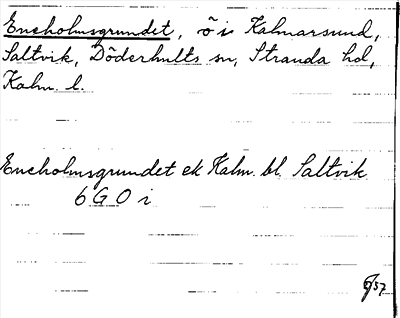 Eneholmsgrundet, ö i Kalmarsund,
Saltvik, Döderhults sn, Stranda hd,
Kalm. l.
Eneholmsgrundet ek Kalm. bl. Saltvik
6 G O i